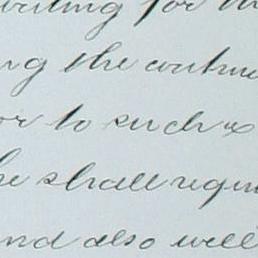 writing for th
ng the continu
or to such
he shall requi
and also well